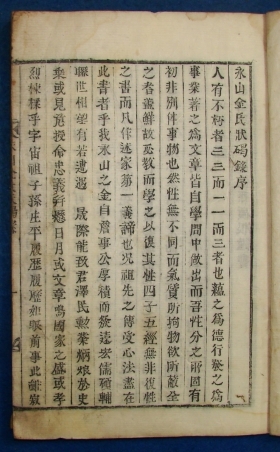 永山金氏狀碣錄序
人有不朽者三三而一一而三者也蘊之爲德行發之爲
事業著之爲文章皆自學問中做出而吾性分之所固有
初非別件事物也然性無不同而氣質所拘物欲所蔽全
之者盖鮮故學以復其性四子五經無非復性
之書而凡作述家第一義諦也况祖先之傳受心法盡在
此書者乎我永山之金詹事公學積而發遠宏儒碩輔
聯世相望有若
晟際能致君澤民勳業炳烺於史
乘或見危授命忠義幷懸日月或文章鳴國家之盛或孝
烈棟樑乎宇宙祖子孫生平履歷
前事此